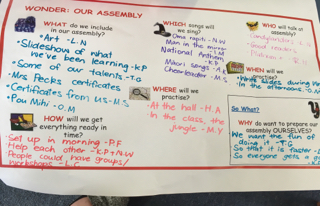 WONDER: OUR ASSEMBLY
WHAT do we include
in our assembly?
• Art - L.N
• Slideshow of what
we've been learning - K.P
• Some of our talents - T.G
• Mrs Pecks certificates
• Certificates from us - M.S
• You Mihi - O.M
HOW will we get
everything ready in
time?
Set up in morning - P.F
Help each other - K.P + N.W
People could have groups/
workshops - L.C
WHICH songs will
we sing?
Oma rapiti - N.W
Man in the mirror
National Anthem
Maori songs - A
Cheerleader - M.S
WHERE will we
practise?
At the hall - H.A
In the class, the
jungle - M.Y
WHO will talk at
assembly?
Good readers
WHEN will we
practise?
slides during
So What?
WHY do want to prepare our
assembly OURSELVES?
We want the fun of
doing it - T.G
So that it is faster - L
So everyone gets a